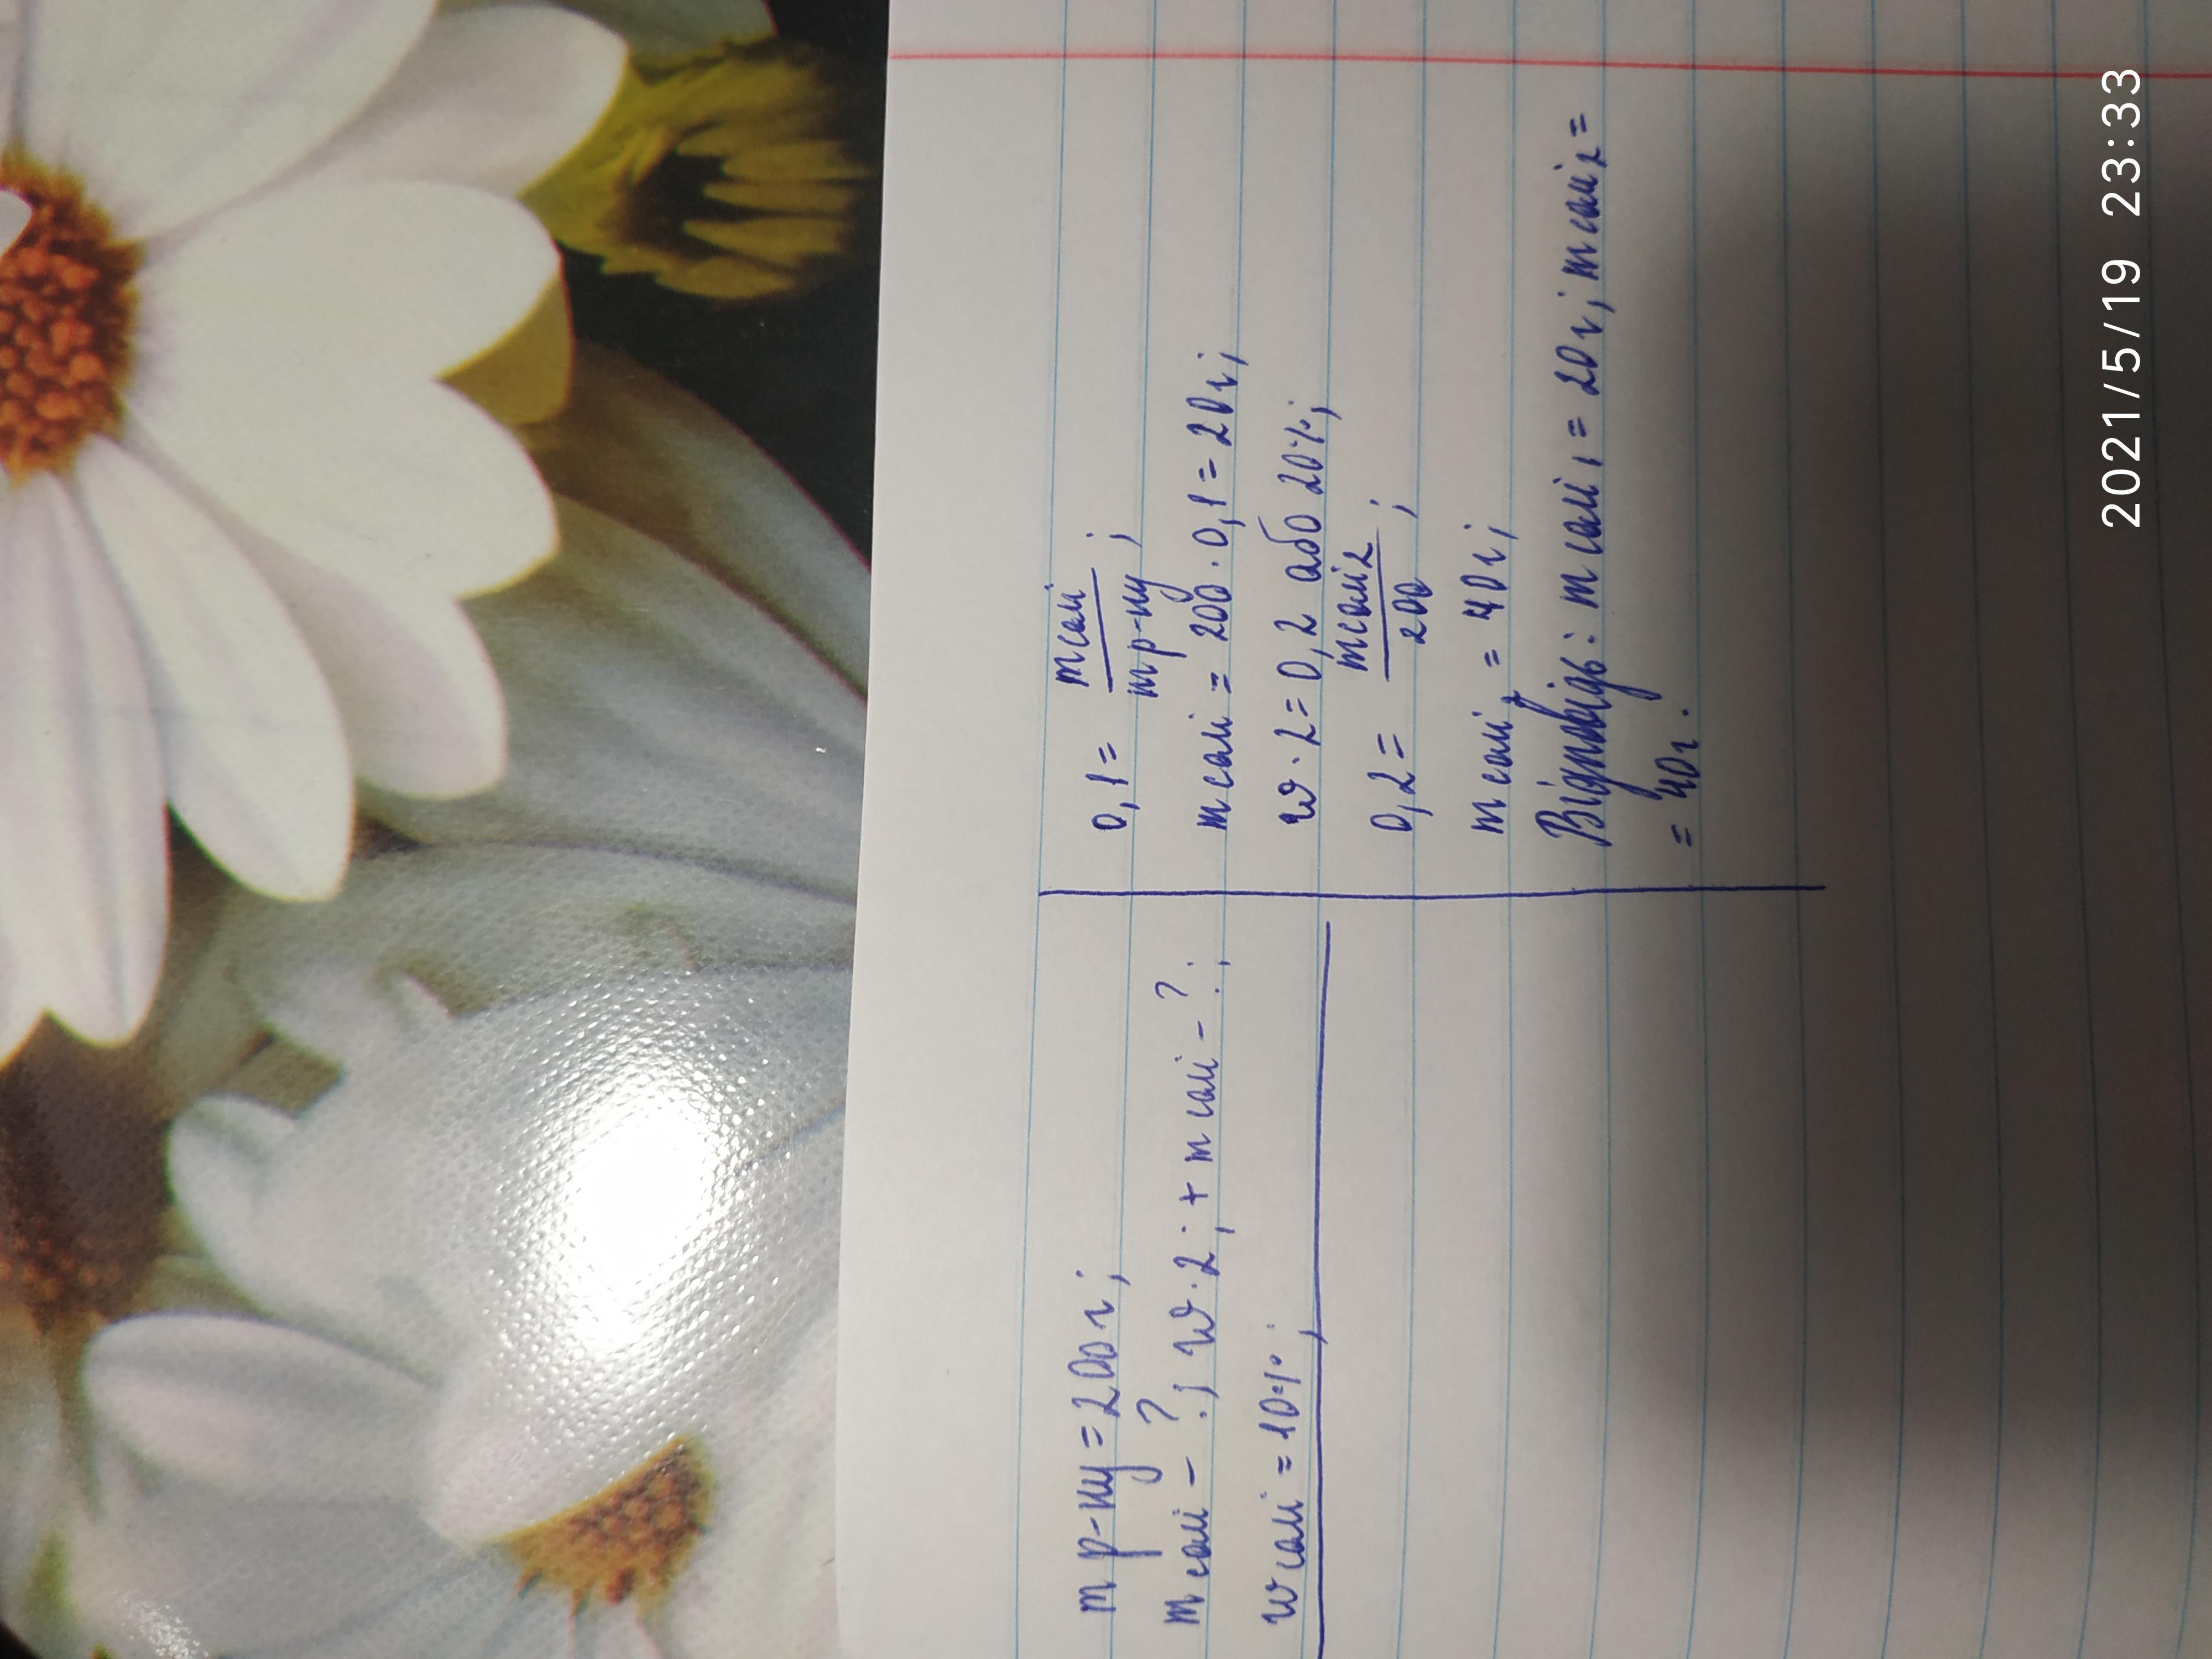 m р-ну = 200 г;
m солі - ?; w · 2; + m солі - ?;
w солі = 10%;
0,1 = m солі / m р-ну;
m солі = 200 · 0,1 = 20 г;
w · 2 = 0,2 або 20%;
0,2 = m солі 2 / 200;
m солі 2 = 40 г;
Відповідь: m солі 1 = 20 г; m солі 2 =
= 40 г.
2021/5/19 23:33